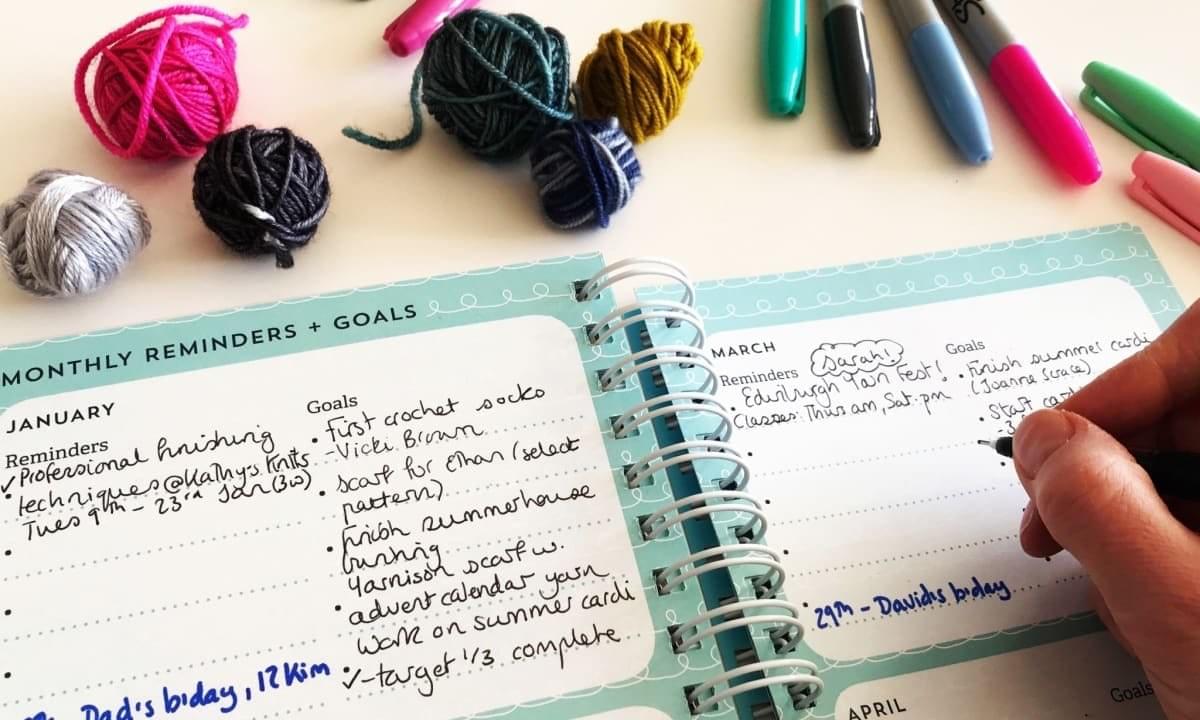 MONTHLY REMINDERS + GOALS
JANUARY
Reminders
Professional finishing
techniques @ Kathy's Knits
Tues 9th - 23rd Jan (3w)
Dad's b/day, 12 Kim
Goals
First crochet socks
-Vicki Brown
Scarf for Ethan (select
pattern)
Finish summerhouse
bunting
Yarnison scarf w.
advent calendar yarn
Work on summer cardi
-target 1/3 complete
MARCH
Sarah!
Reminders
Edinburgh Yarn Fest!
Classes: Thurs am, Sat pm
29th - David's b/day
Goals
Finish summer cardi
(Joanne Scrace)
Start
APRIL
Goals